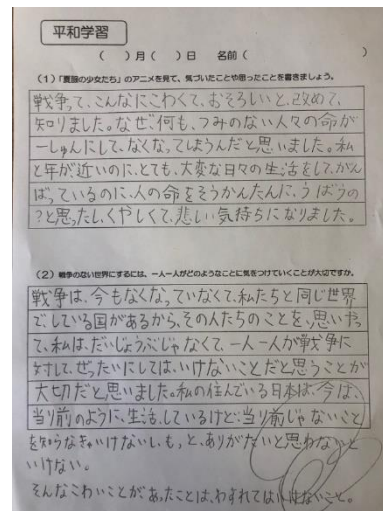 平和学習
(　)月(　)日　名前(　)
(1)「夏服の少女たち」のアニメを見て、気づいたことや思ったことを書きましょう。
戦争って、こんなにこわくて、おそろしいと、改めて、
知りました。なぜ、何も、つみのない人々の命が
一しゅんにして、なくなってしまうんだと思いました。私
と年が近いのに、とても、大変な日々の生活をして、がん
ばっているのに、人の命をそうかんたんに、うばうの
?と思ったし、くやしくて、悲しい気持ちになりました。
(2)戦争のない世界にするには、一人一人がどのようなことに気をつけていくことが大切ですか。
戦争は、今もなくなっていなくて、私たちと同じ世界
で、している国があるから、その人たちのことを、思いやっ
て、私は、だいじょうぶじゃなくて、一人一人が戦争に
対して、ぜったいにしては、いけないことだと思うことが
大切だと思いました。私の住んでいる日本は、今は、
当り前のように、生活、しているけど、当り前じゃないこと
を知らなきゃいけないし、もっと、ありがたいと思わないと
いけない。
そんなこわいことが、あったことは、わすれてはいけないこと。